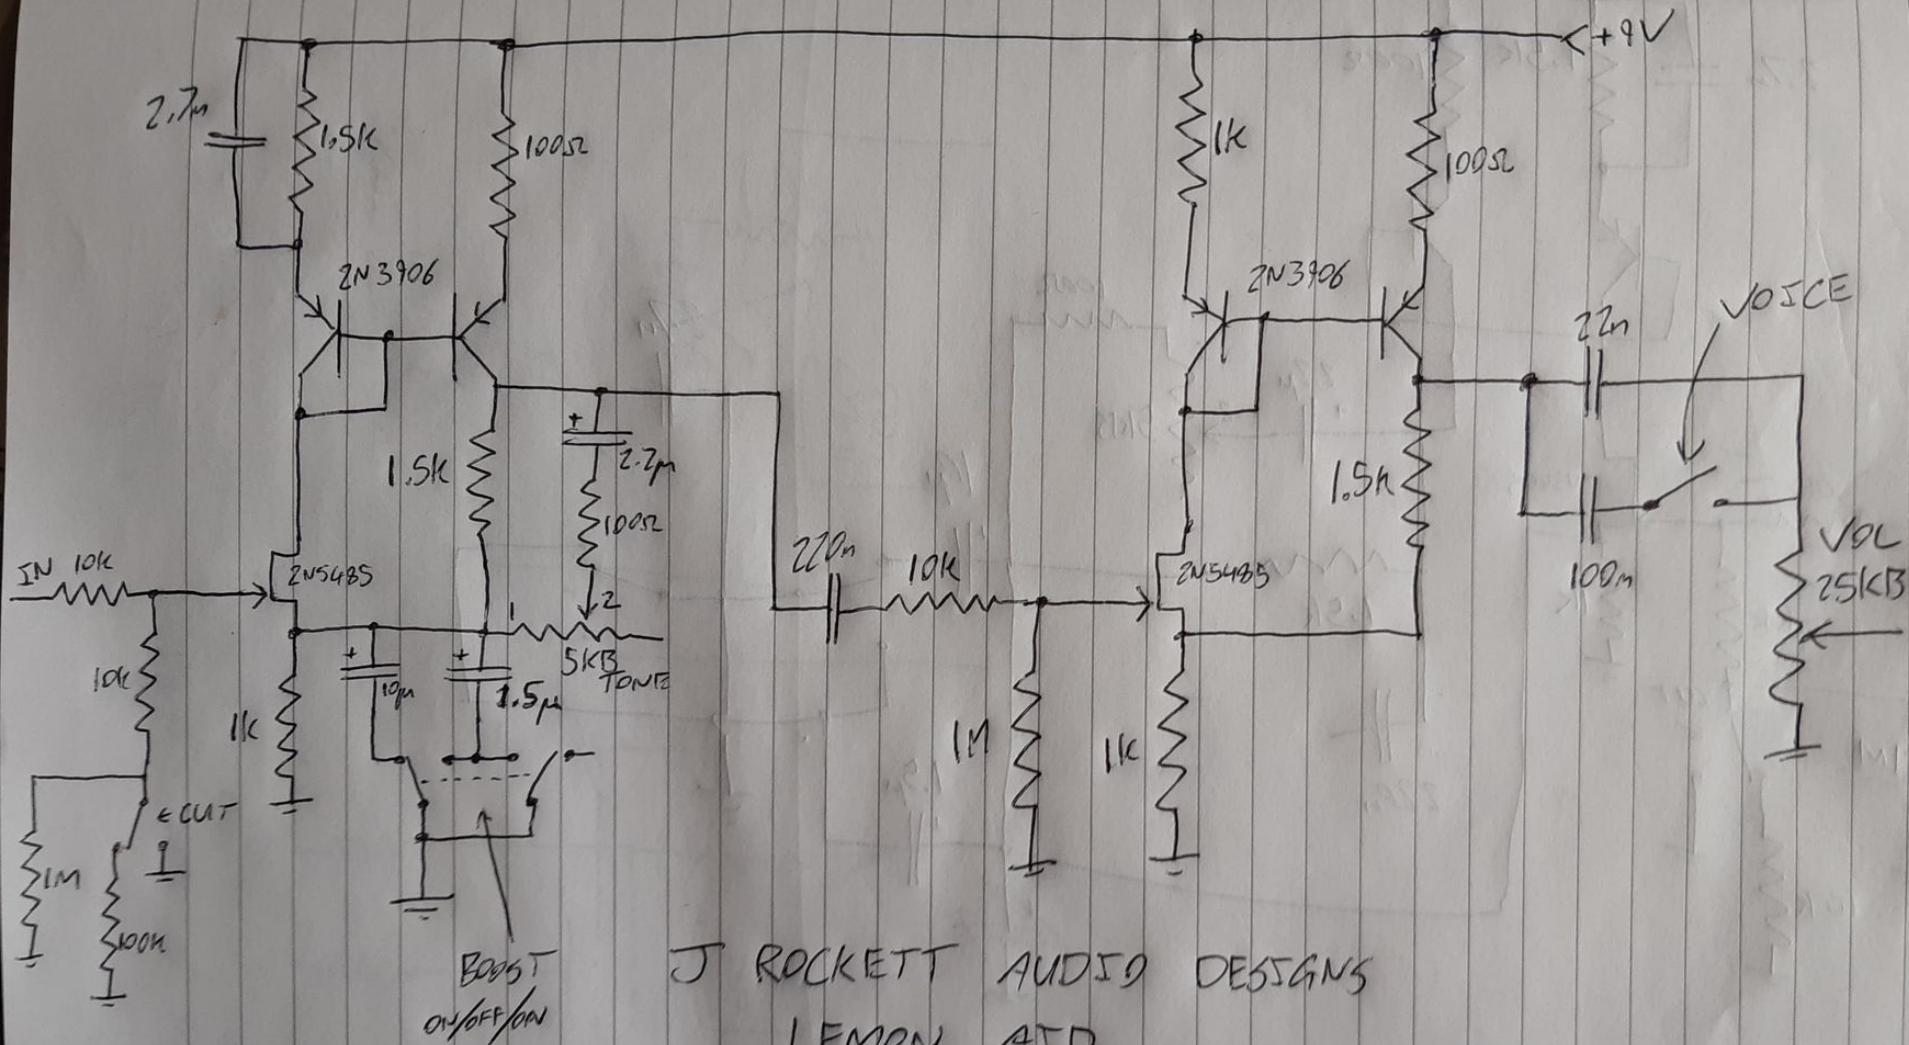 +9V
2.7µ
1.5K
100Ω
1K
100Ω
2N3906
2N3906
VOICE
22n
1.5K
2.2µ
100Ω
1.5K
IN 10K
2N5485
220n
10K
2N5485
100n
VOL
25KB
1
2
5KB
TONE
10K
1K
10µ
1.5µ
1M
1K
CUT
1M
100K
BOOST
ON/OFF/ON
J ROCKETT AUDIO DESIGNS
LEMON AID